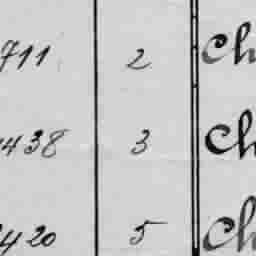 711 2 Ch
438 3 Ch
420 5 Ch